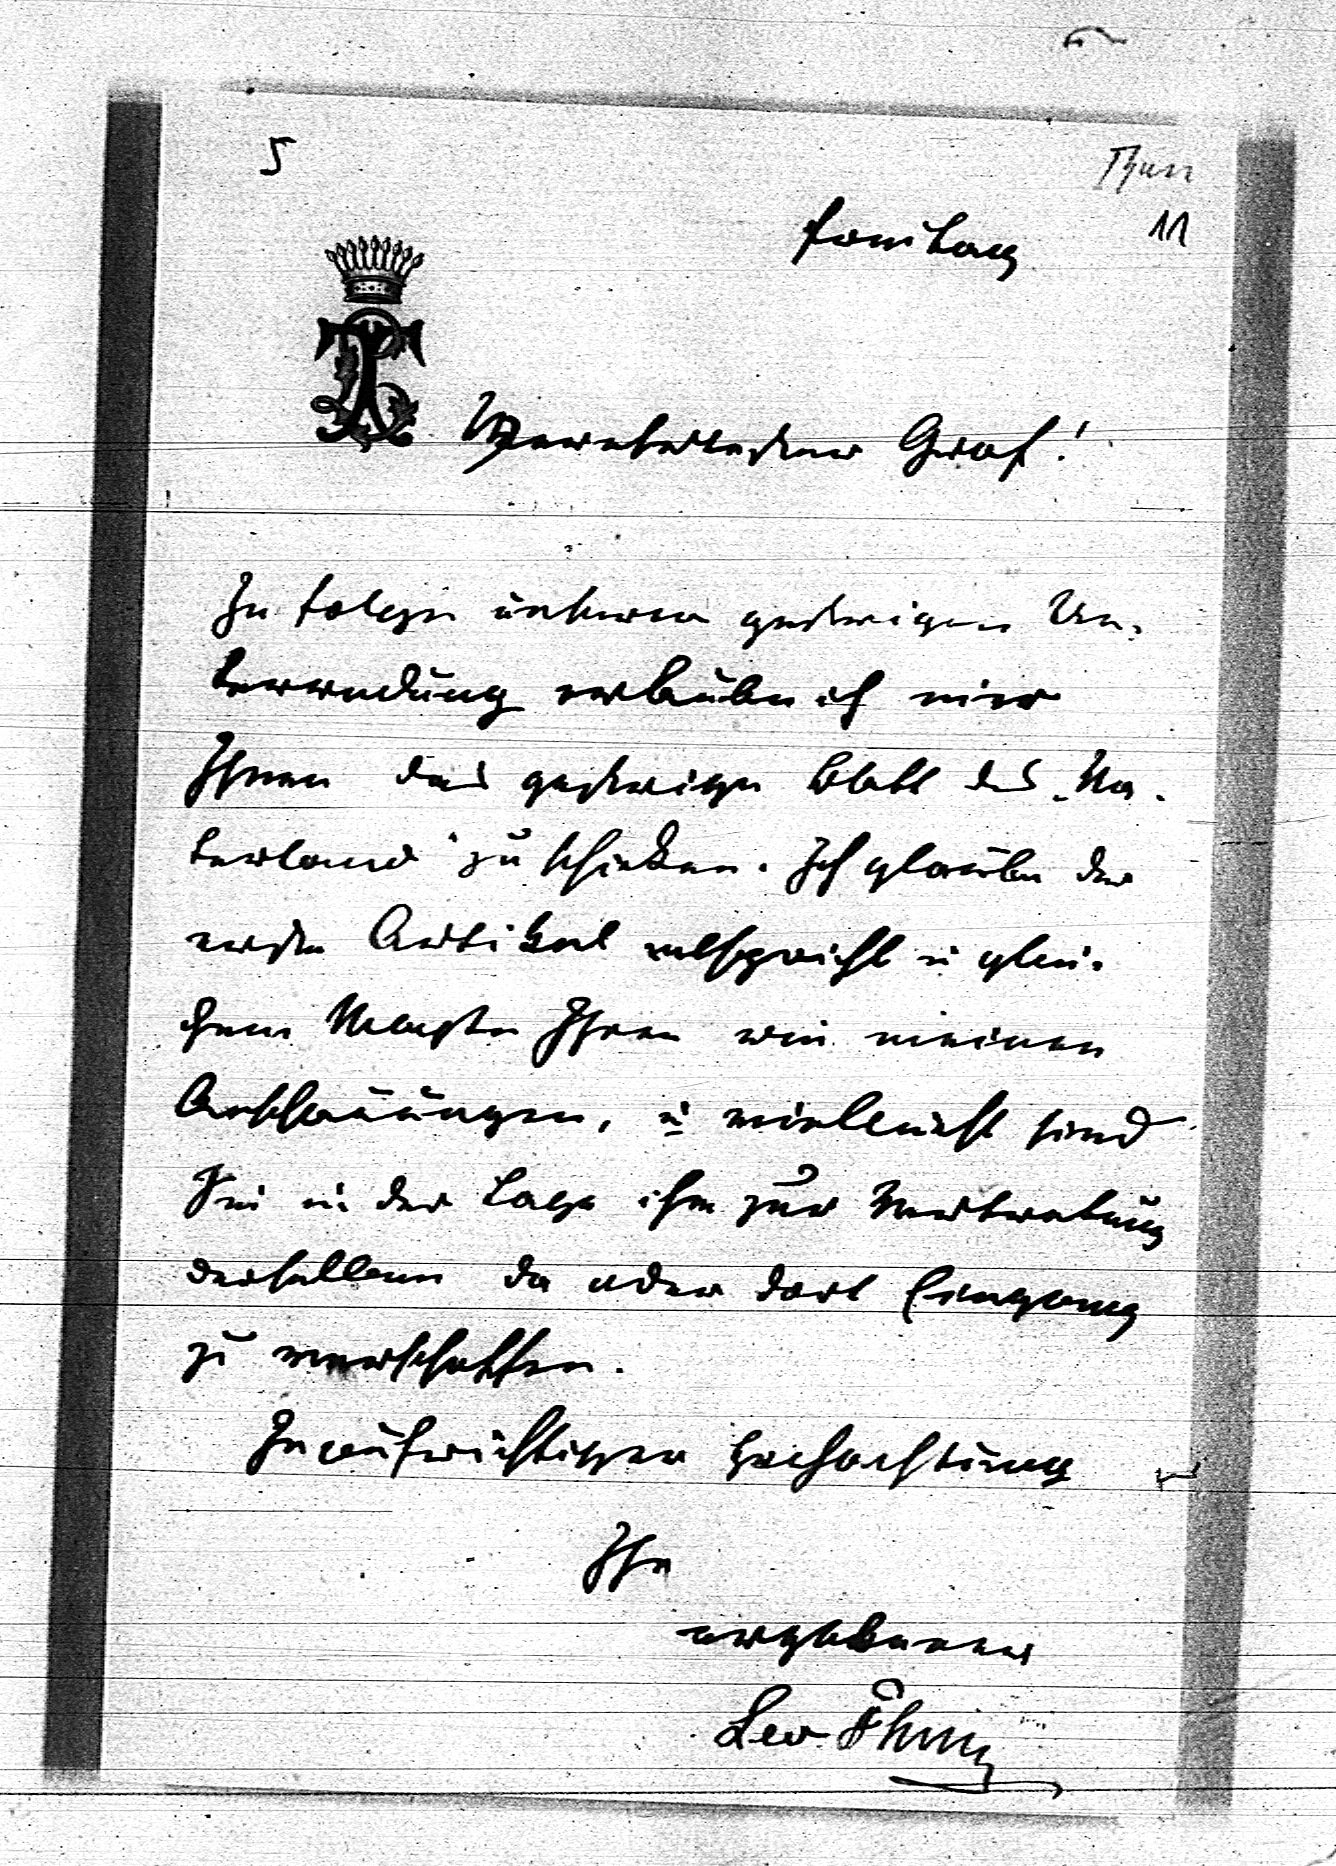 5
Thun
11
Freitag
Verehrtester Graf!
In folge unserer gestrigen Un-
terredung erlaube ich mir
Ihnen das gestrige Blatt des „Va-
terland" zu schicken. Ich glaube der
erste Artikel entspricht in glei-
chem Maaße Ihren wie meinen
Anschauungen, u vielleicht sind
Sie in der Lage ihm zur Vertretung
derselben da oder dort Eingang
zu verschaffen.
In aufrichtiger Hochachtung
Ihr
ergebener
Leo Thun